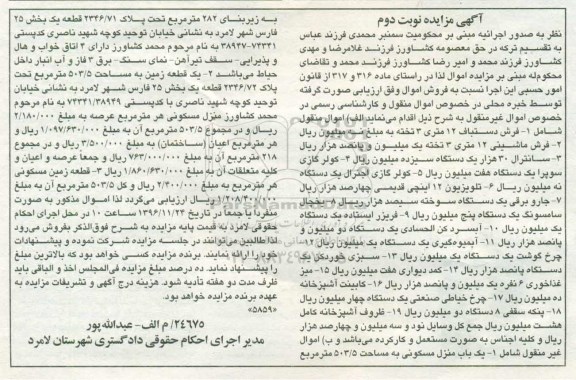 آگهی مزایده نوبت دوم
نظر به صدور اجرائیه مبنی بر محکومیت سمنبر محمدی فرزند عباس
به تقسیم ترکه در حق معصومه کشاورز فرزند غلامرضا و مهدی
کشاورز فرزند محمد و امیر رضا کشاورز فرزند محمد و تقاضای
محکوم‌له مبنی بر مزایده اموال لذا در راستای ماده ۳۱۶ و ۳۱۷ از قانون
امور حسبی این اجرا نسبت به فروش اموال وفق ارزیابی صورت گرفته
توسط خبره محلی در خصوص اموال منقول و کارشناسی رسمی در
خصوص اموال غیرمنقول به شرح ذیل اقدام می‌نماید الف) اموال منقول
شامل ۱- فرش دستباف ۱۲ متری ۲ تخته به مبلغ میلیون ریال
۲- فرش ماشینی ۱۲ متری ۳ تخته یک میلیون و پانصد هزار ریال
۳- سانترال ۳۰ هزار یک دستگاه سیزده میلیون ریال ۴- کولر گازی
سوپرا یک دستگاه هفت میلیون ریال ۵- کولر گازی اجنرال یک دستگاه
نه میلیون ریال ۶- تلویزیون ۱۲ اینچی قدیمی چهارصد هزار ریال
۷- جارو برقی یک دستگاه سوخته سیصد هزار ریال ۸- یخچال
سامسونگ یک دستگاه پنج میلیون ریال ۹- فریزر ایستاده یک دستگاه
یک میلیون ریال ۱۰- آبسرد کن الحسادی یک دستگاه دو میلیون و
پانصد هزار ریال ۱۱- آبمیوه‌گیری یک دستگاه یک میلیون ریال ۱۲-
چرخ گوشت یک دستگاه یک میلیون ریال ۱۳- سبزی خوردکن یک
دستگاه پانصد هزار ریال ۱۴- کمد دیواری هفت میلیون ریال ۱۵- میز
غذاخوری ۶ نفره یک میلیون و پانصد هزار ریال ۱۶- کابینت آشپزخانه
ده میلیون ریال ۱۷- چرخ خیاطی صنعتی یک دستگاه چهار میلیون ریال
۱۸- پنکه سقفی ۸ دستگاه دو میلیون ریال ۱۹- ظروف آشپزخانه کامل
هشت میلیون ریال جمع کل وسایل نود و سه میلیون و چهارصد هزار
ریال و کلیه اجناس به صورت مستعمل و کارکرده می‌باشد و ب) اموال
غیر منقول شامل ۱- یک باب منزل مسکونی به مساحت ۵۰۳/۵ مترمربع
به زیربنای ۲۸۲ مترمربع تحت پلاک ۲۳۴۶/۷۱ قطعه یک بخش ۲۵
فارس شهر لامرد به نشانی خیابان توحید کوچه شهید ناصری کدپستی
۷۴۳۴۱-۳۸۹۴۷ به نام مرحوم محمد کشاورز دارای ۴ اتاق خواب و هال
و پذیرایی- سقف تیرآهن- نمای سنگ- برق ۳ فاز و آب انبار داخل
حیاط می‌باشد ۲- یک قطعه زمین به مساحت ۵۰۳/۵ مترمربع تحت
پلاک ۲۳۴۶/۷۲ قطعه یک بخش ۲۵ فارس شهر لامرد به نشانی خیابان
توحید کوچه شهید ناصری با کدپستی ۷۴۳۴۱/۳۸۹۴۹ به نام مرحوم
محمد کشاورز منزل مسکونی هر مترمربع عرصه به مبلغ ۲/۱۸۰/۰۰۰
ریال و در مجموع ۵۰۳/۵ مترمربع آن به مبلغ ۱/۰۹۷/۶۳۰/۰۰۰ ریال و
هر مترمربع اعیان (ساختمان) به مبلغ ۳/۵۰۰/۰۰۰ ریال و در مجموع
۲۱۸ مترمربع آن به مبلغ ۷۶۳/۰۰۰/۰۰۰ ریال و جمعاً عرصه و اعیان و
کلیه متعلقات آن به مبلغ ۱/۸۶۰/۶۳۰/۰۰۰ ریال ۳- قطعه زمین مسکونی
هر مترمربع به مبلغ ۲/۴۰۰/۰۰۰ ریال و کل ۵۰۳/۵ مترمربع آن به مبلغ
۱/۲۰۸/۴۰۰/۰۰۰ ریال ارزیابی می‌گردد لذا اموال مذکور به صورت
منفرداً یا جمعاً در تاریخ ۱۳۹۶/۱۱/۲۳ ساعت ۱۰ در محل اجرای احکام
حقوقی لامرد با قیمت پایه مزایده به شرح فوق‌الذکر بفروش می‌رود
لذا طالبین می‌توانند در جلسه مزایده شرکت نموده و پیشنهادات
خود را ارائه نمایند. برنده مزایده کسی خواهد بود که بالاترین مبلغ
را پیشنهاد نماید. ده درصد مبلغ مزایده فی‌المجلس اخذ و الباقی باید
ظرف مدت دو هفته تأدیه شود. هزینه درج آگهی و تشریفات مزایده به
عهده برنده مزایده خواهد بود.
«۵۸۵۹»
۲۴۶۷۵/ م الف- عبدالله‌پور
مدیر اجرای احکام حقوقی دادگستری شهرستان لامرد